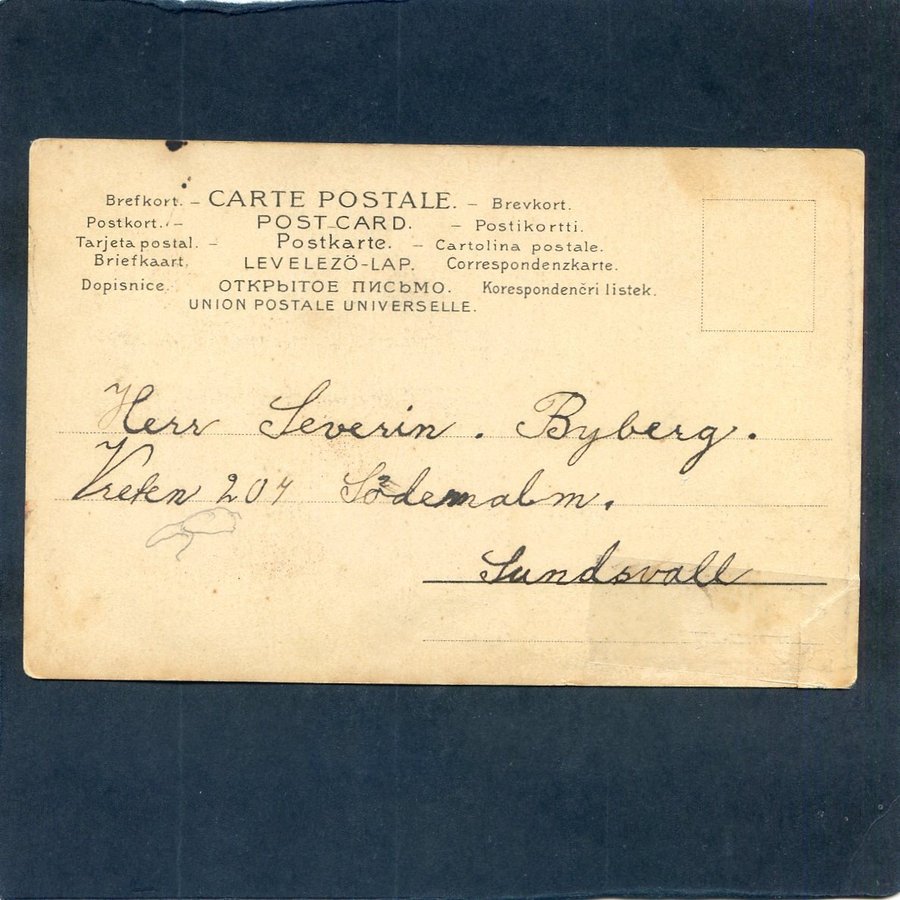 Brefkort. – CARTE POSTALE. – Brevkort.
Postkort. – POST CARD. – Postikortti.
Tarjeta postal. – Postkarte. – Cartolina postale.
Briefkaart. LEVELEZÖ-LAP. Correspondenzkarte.
Dopisnice. ОТКРЫТОЕ ПИСЬМО. Korespondenčri listek.
UNION POSTALE UNIVERSELLE.
Herr Severin. Byberg.
Vreten 204 Södemalm.
Sundsvall